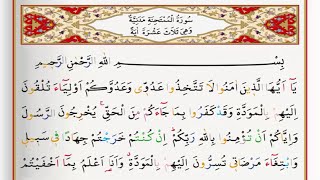 سُورَةُ الْمُمْتَحِنَةِ مَدَنِيَّةٌ
وَهِيَ ثَلَاثَ عَشْرَةَ اٰيَةً
بِسْــــــمِ اللّٰهِ الرَّحْمٰنِ الرَّحِيمِ
يَٓا اَيُّهَا الَّذٖينَ اٰمَنُوا لَا تَتَّخِذُوا عَدُوّٖى وَعَدُوَّكُمْ اَوْلِيَٓاءَ تُلْقُونَ
اِلَيْهِمْ بِالْمَوَدَّةِ وَقَدْ كَفَرُوا بِمَا جَٓاءَكُمْ مِنَ الْحَقِّ ۚ يُخْرِجُونَ الرَّسُولَ
وَاِيَّاكُمْ اَنْ تُؤْمِنُوا بِاللّٰهِ رَبِّكُمْ ۜ اِنْ كُنْتُمْ خَرَجْتُمْ جِهَادًا فٖى سَبٖيلٖى
وَابْتِغَٓاءَ مَرْضَاتٖى تُسِرُّونَ اِلَيْهِمْ بِالْمَوَدَّةِ وَاَنَا۬ اَعْلَمُ بِمَٓا اَخْفَيْتُمْ